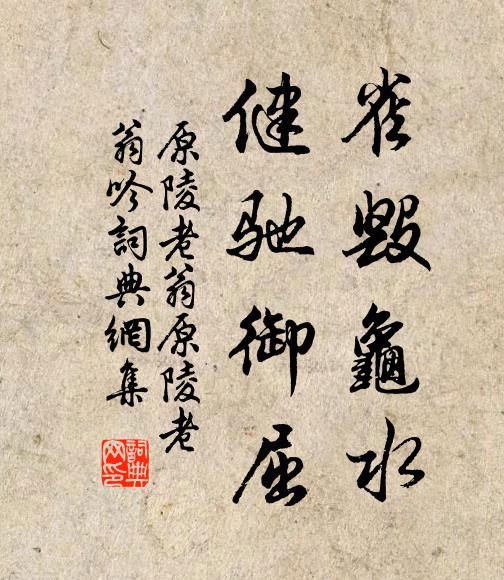 雀毁龜水
健馳御屈
原陵老翁原陵老
翁吟詞典網集
詞典網印